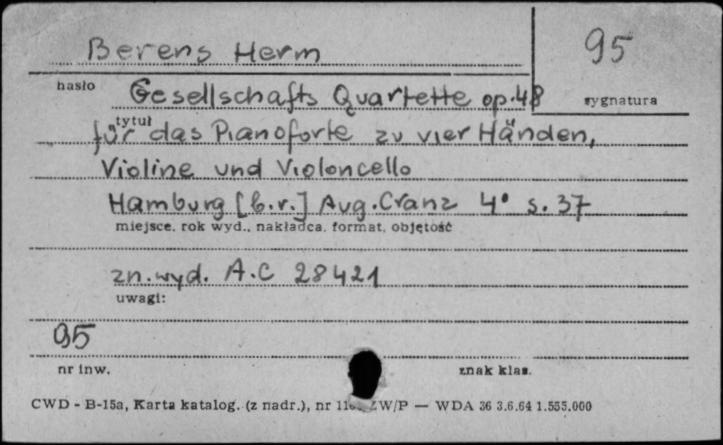 Berens Herm
95
hasło
Gesellschafts Quartette op. 48
sygnatura
tytuł
für das Pianoforte zu vier Händen,
Violine und Violoncello
Hamburg [b.r.] Aug. Cranz 4° s. 37
miejsce, rok wyd., nakładca, format, objętość
zn. wyd. A.C 28421
uwagi:
95
nr inw.
znak klas.
CWD - B-15a, Karta katalog. (z nadr.), nr ZW/P — WDA 36 3.6.64 1.555.000